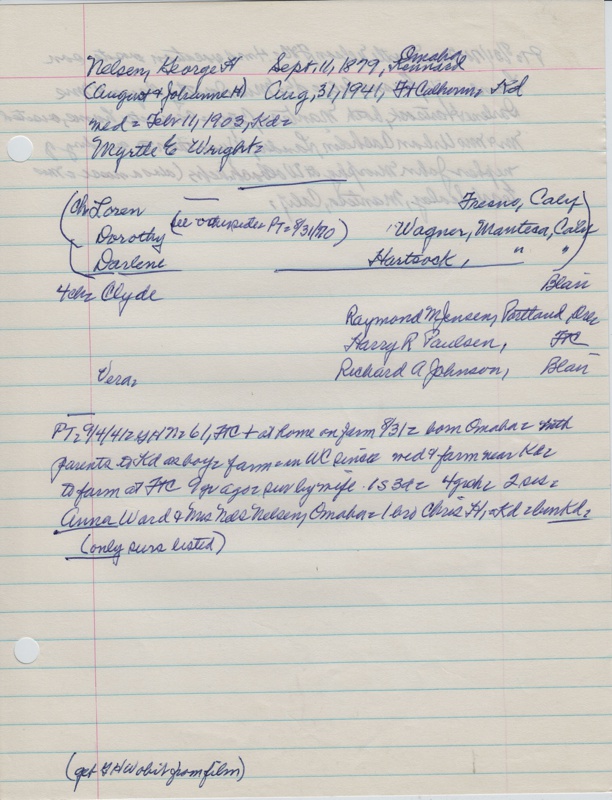 Nelsen, George H   Sept. 11, 1879, Omaha Kennard
(August & Johanne H)   Aug, 31, 1941, Ft Calhoun = Kd
med = Febr 11, 1903, Kd =
Myrtle E Wright =
(Ch: Loren   Fresno, Calif)
Dorothy (see otherside = PT = 8/31/70)   Wagner, Manteca, Calif
Darlene   Hartsock, " "
4ch = Clyde   Blair
Raymond M Jensen, Portland, Ore
Harry R Paulsen, FtC
Vera =   Richard A Johnson, Blair
PT = 9/4/41 = G H N = 61, FtC + at home on farm 8/31 = born Omaha = with
parents to Kd as boy = farm = in WC since med & farm near Kd =
to farm at FtC 9 yr ago = surv by wife 1 s 3 d = 4 gch = 2 sis =
Anna Ward & Mrs Nels Nelsen, Omaha = 1 bro Chris H, = Kd = bur Kd =
(only survs listed)
(get G H N obit from film)